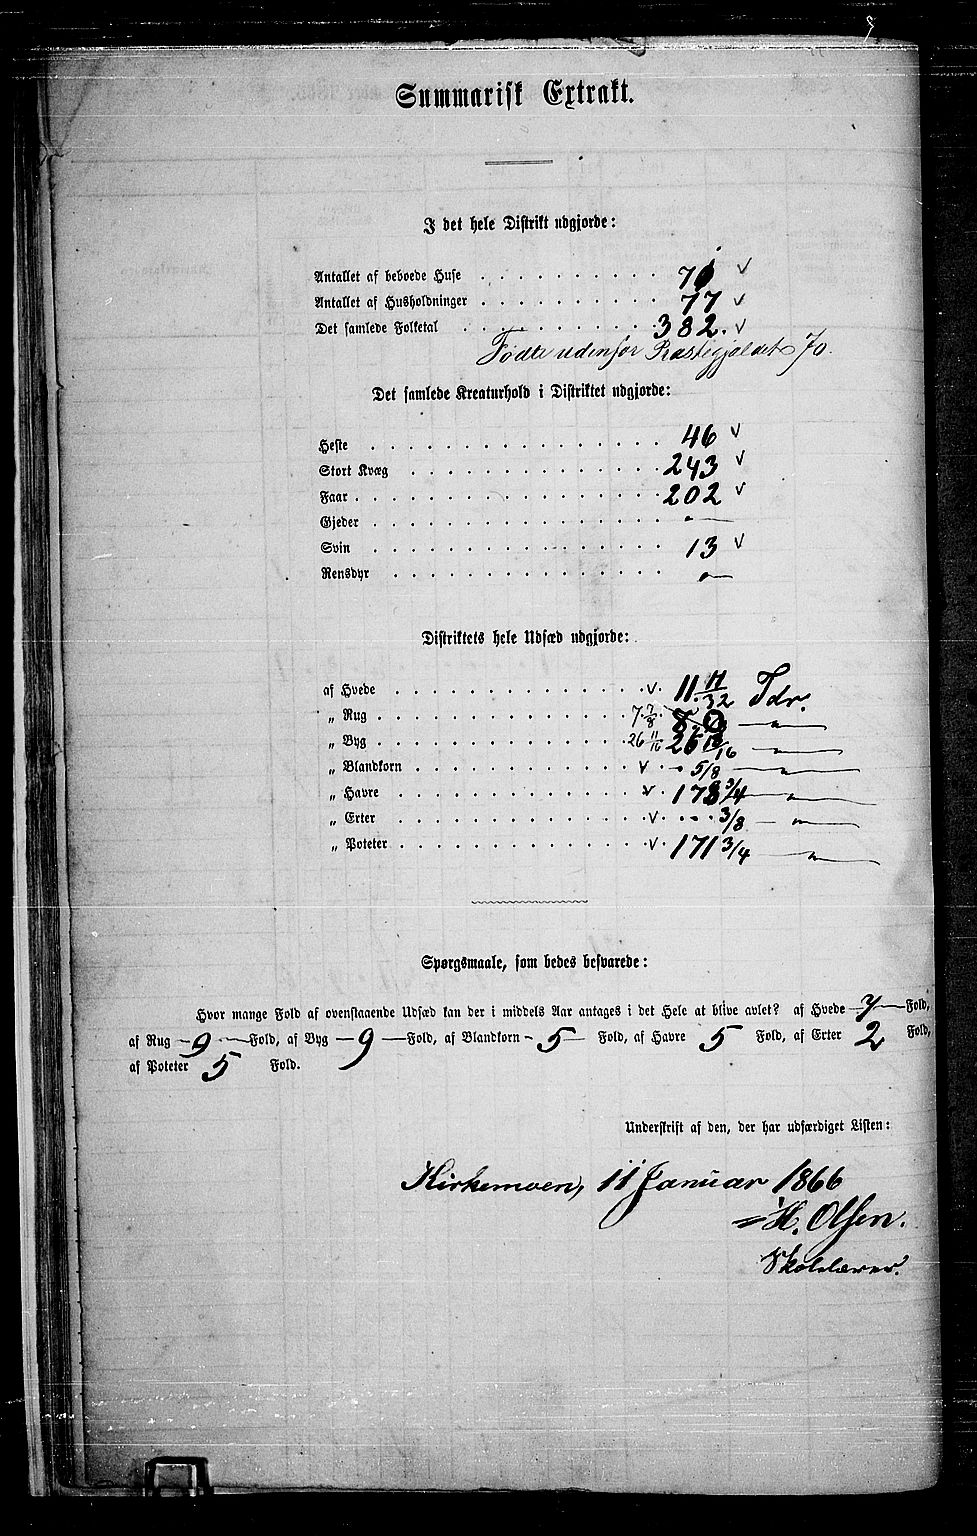 Summarisk Extrakt.
I det hele Distrikt udgjorde:
Antallet af beboede Huse . . . . . . . . . . 
Antallet af Husholdninger . . . . . . . . . . 77 v
Det samlede Folketal . . . . . . . . . . 382. v
Fødte udenfor Præstegjældet 70.
Det samlede Kreaturhold i Distriktet udgjorde:
Heste . . . . . . . . . . 46 v
Stort Kvæg . . . . . . . . . . 243 v
Faar . . . . . . . . . . 202 v
Gjeder . . . . . . . . . . "—
Svin . . . . . . . . . . 13 v
Rensdyr . . . . . . . . . . "—
Distriktets hele Udsæd udgjorde:
af Hvede . . . . . . . . . . v. 11 11/32 Tdr.
„ Rug . . . . . . . . . . 7 7/8 —"—
„ Byg . . . . . . . . . . 26 11/16 —"—
„ Blandkorn . . . . . . . . . . v " 5/8 —"—
„ Havre . . . . . . . . . . v 178 3/4 —"—
„ Erter . . . . . . . . . . v " 3/8 —"—
„ Poteter . . . . . . . . . . v 171 3/4 —"—
Spørgsmaale, som bedes besvarede:
Hvor mange Fold af ovenstaaende Udsæd kan der i middels Aar antages i det Hele at blive avlet? af Hvede — 7 — Fold,
af Rug — 9 — Fold, af Byg — 9 — Fold, af Blandkorn - 5 — Fold, af Havre 5 Fold, af Erter 2 Fold,
af Poteter 5 Fold.
Underskrift af den, der har udfærdiget Listen:
Kirkemoen, 11 Januar 1866
H. Olsen.
Skolelærer.